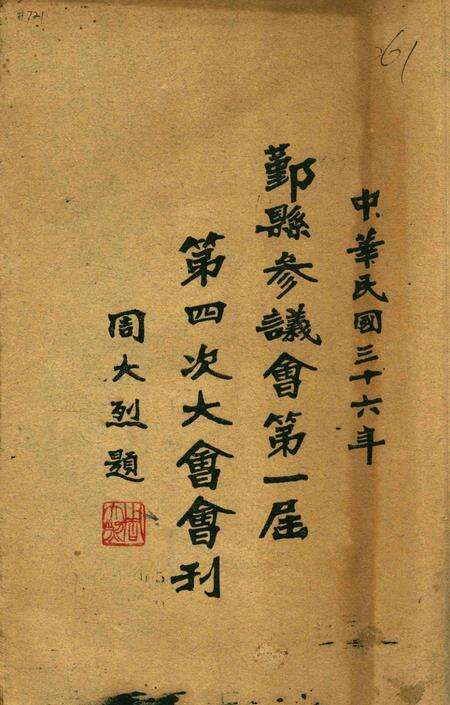 #721
61
中華民國三十六年
鄞縣參議會第一屆
第四次大會會刊
周大烈題